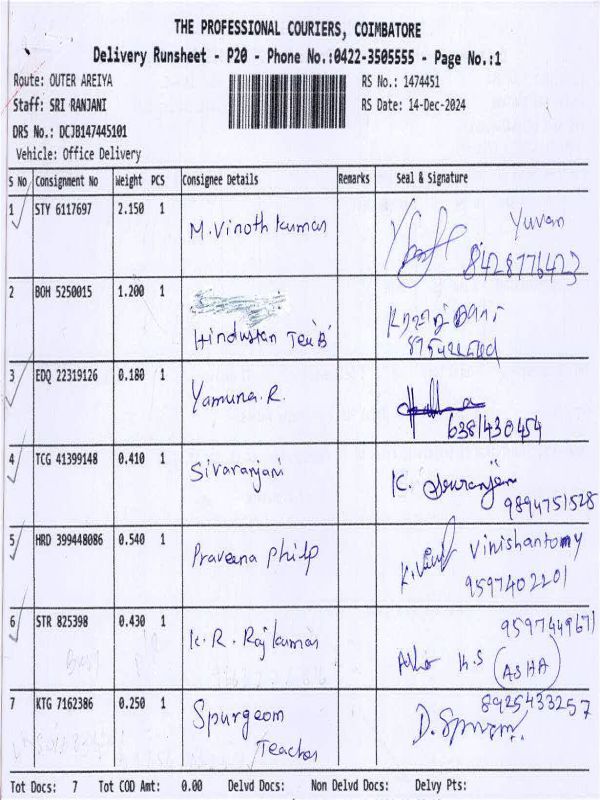 THE PROFESSIONAL COURIERS, COIMBATORE
Delivery Runsheet - P20 - Phone No.:0422-3505555 - Page No.:1
Route: OUTER AREIYA RS No.: 1474451
Staff: SRI RANJANI RS Date: 14-Dec-2024
DRS No.: DCJB147445101
Vehicle: Office Delivery
S No Consignment No Weight PCS Consignee Details Remarks Seal & Signature
1 STY 6117697 2.150 1 M. Vinoth kumar Yuvan
8428776423
2 BOH 5250015 1.200 1
Hindustan Tea 'B'
3 EDQ 22319126 0.180 1 Yamuna. R.
6381430454
4 TCG 41399148 0.410 1 Sivaranjani K.
9894751528
5 HRD 399448086 0.540 1 Praveena Philp Vinishantomy
9597402201
6 STR 825398 0.430 1 K. R. Rajkumar 9597449671
Asha K.S (ASHA)
7 KTG 7162386 0.250 1 Spurgeom 8925433257
Teacher D.
Tot Docs: 7 Tot COD Amt: 0.00 Delvd Docs: Non Delvd Docs: Delvy Pts: